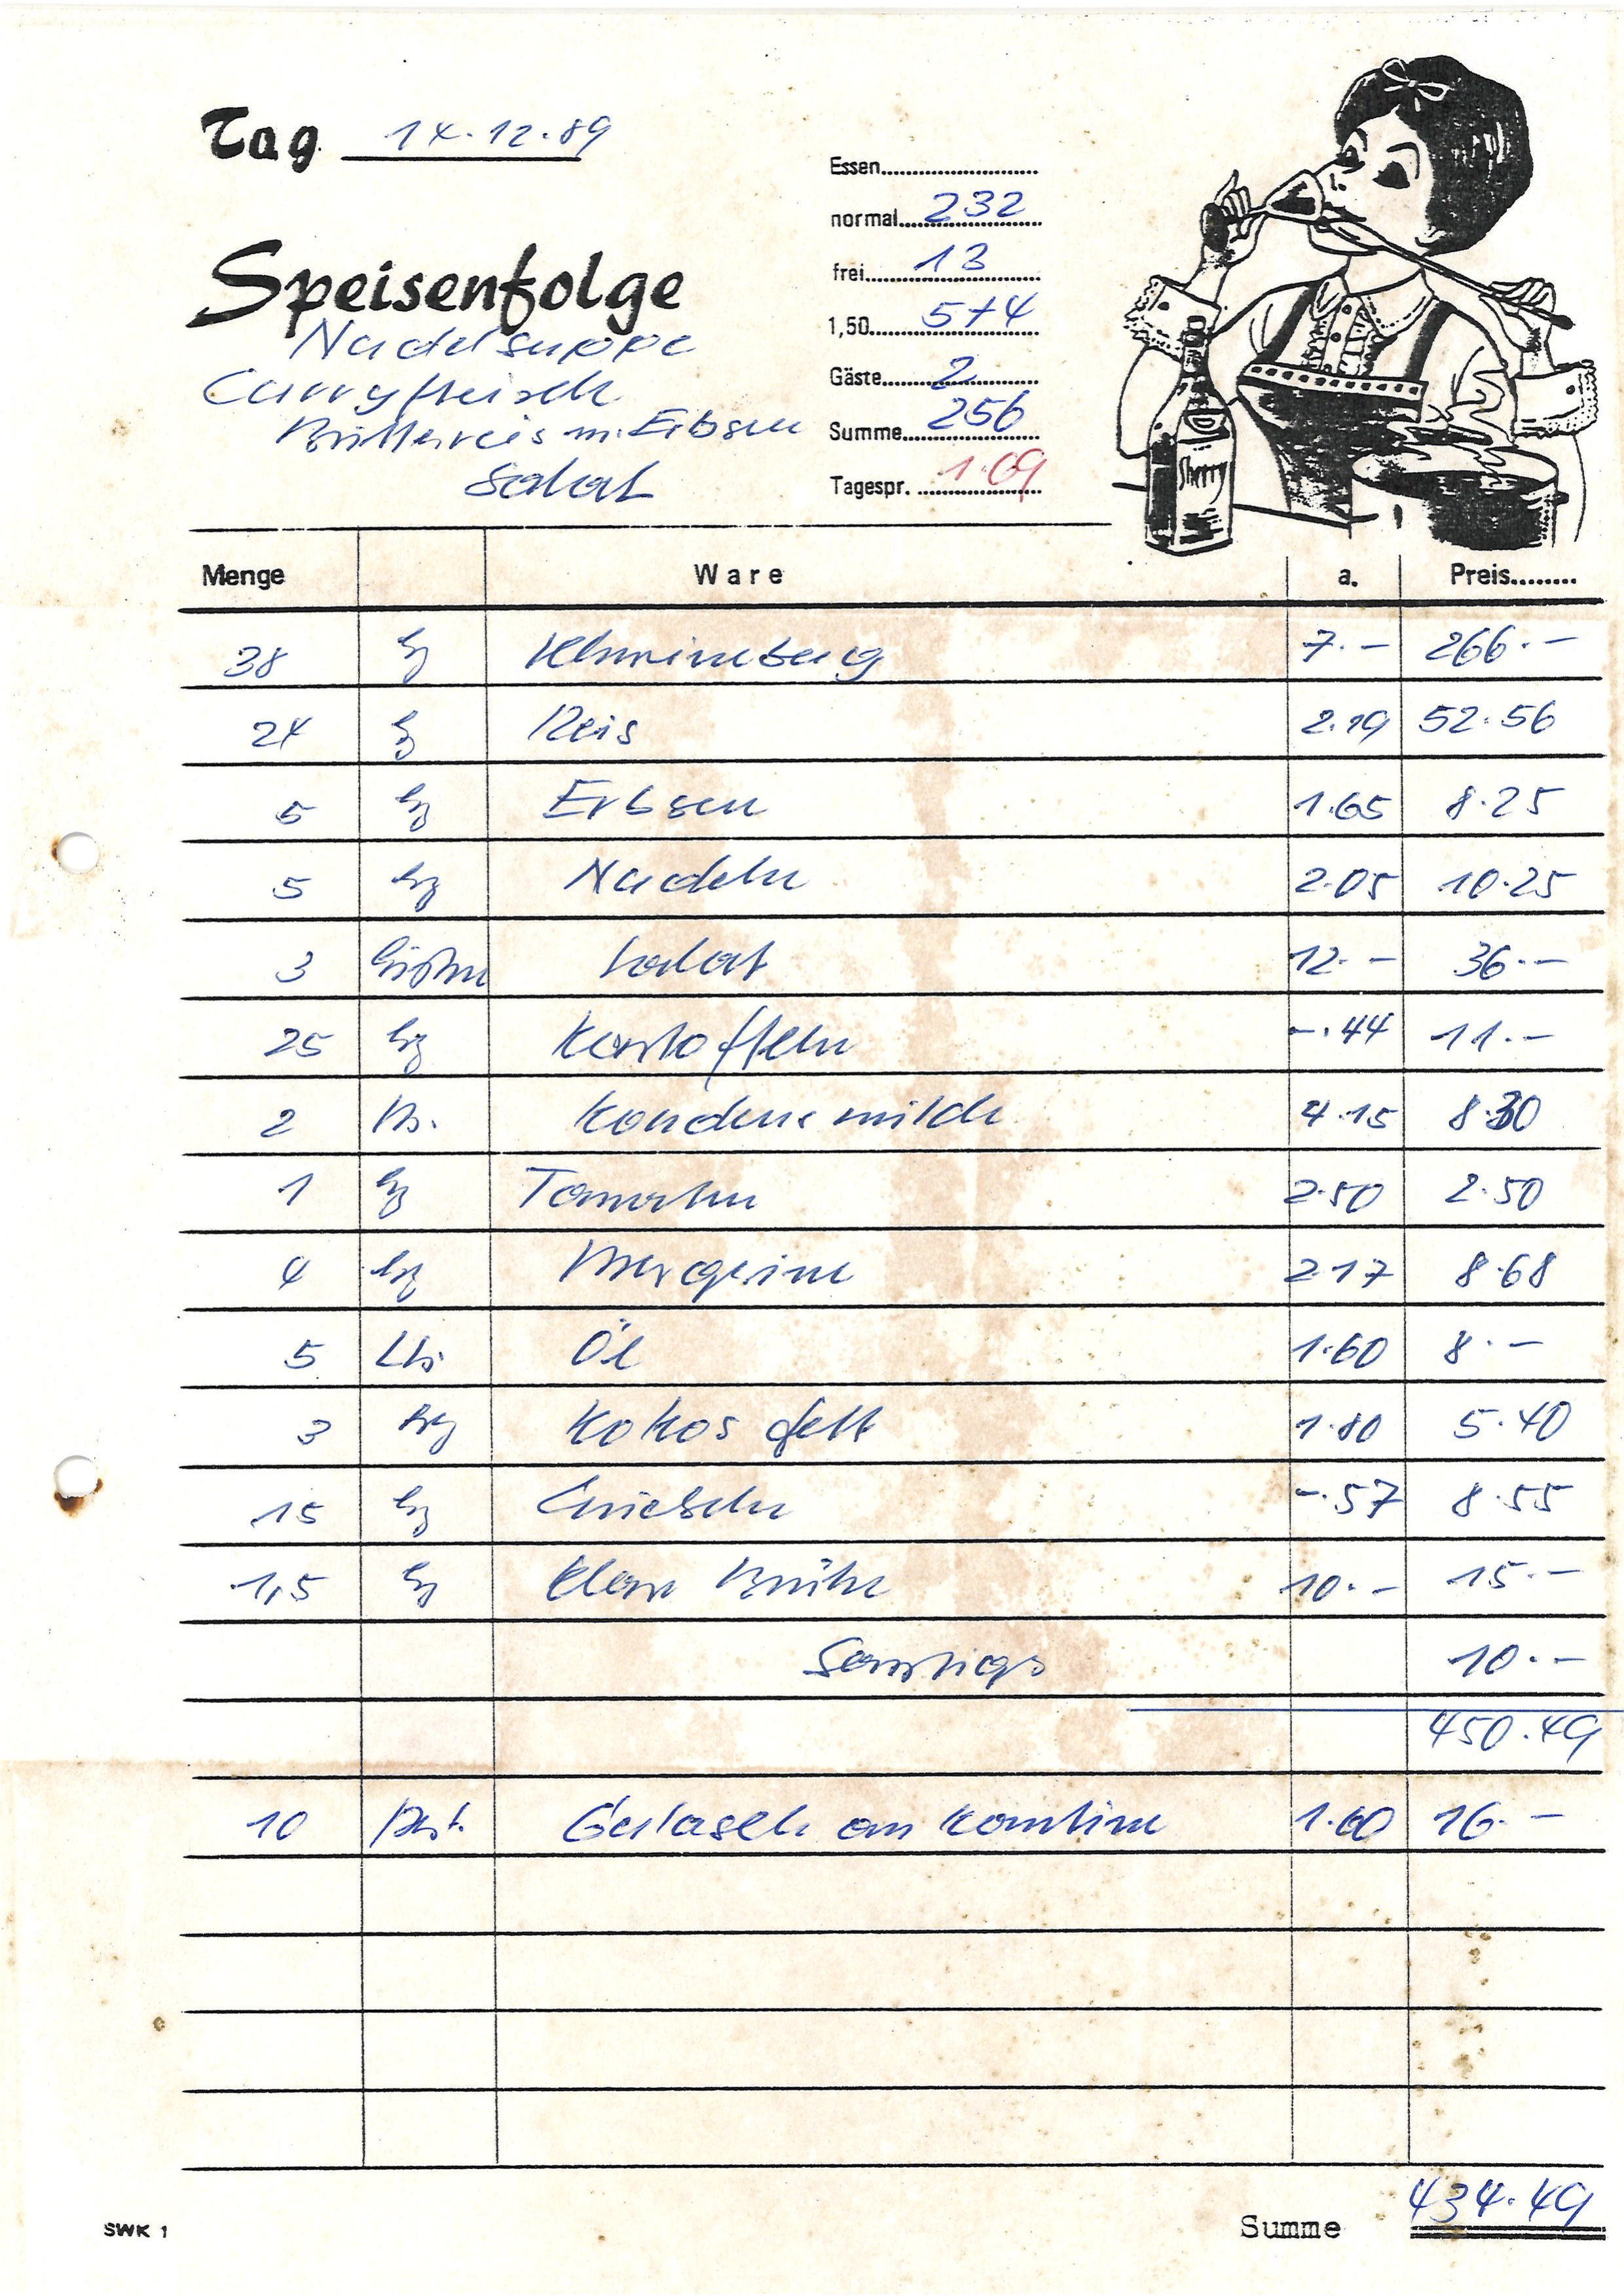 Tag 14.12.89
Essen
normal 232
frei 13
1,50 5+4
Gäste 2
Summe 256
Tagespr. 1.69
Speisenfolge
Nudelsuppe
Curryfleisch
Butterreis m. Erbsen
Salat
Sherry
Menge Ware a. Preis
38 kg 7.- 266.-
24 kg Reis 2.19 52.56
5 kg Erbsen 1.65 8.25
5 kg Nudeln 2.05 10.25
3 Kisten Salat 12.- 36.-
25 kg Kartoffeln -.44 11.-
2 Kondensmilch 4.15 8.30
1 kg Tomaten 2.50 2.50
4 kg Margarine 2.17 8.68
5 Ltr. Öl 1.60 8.-
3 kg Kokosfett 1.80 5.40
15 kg Zwiebeln -.57 8.55
1,5 kg Klare Brühe 10.- 15.-
Sonstiges 10.-
450.49
10 Port. Gulasch an Kantine 1.60 16.-
SWK 1
Summe 434.49